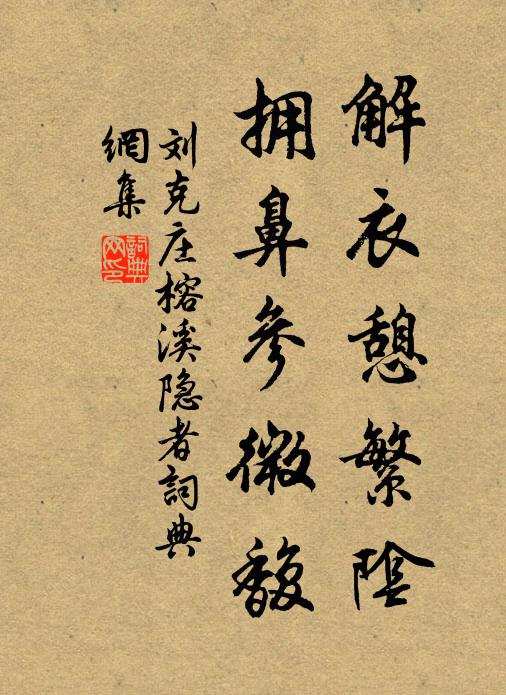 解衣憩繁陰
拥鼻參微馥
刘克庄榕溪隐者詞典
網集
詞典网印